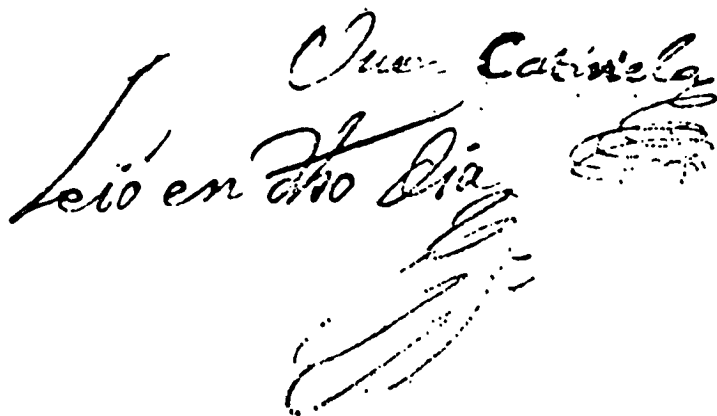 Juan Catinela
Leió en dho Dia